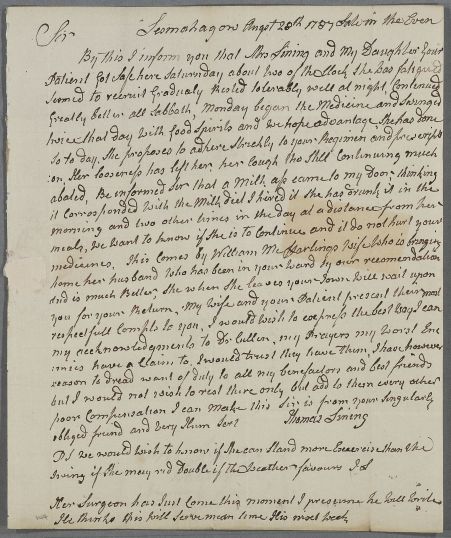 Sir Lesmahagow Augst 28th 1787 Late in the Even
By this I inform you that Mrs Lining and My Daughter Your
Patient Got Safe here Saturnday about two of the Clock She was fatigued
Seemed to recruit Gradualy Rested tolerably well at night, Continued
Greatly better all Sabbath, Monday began the Medicine and Swinged
twice that day with Good Spirits and we hope advantage, She has done
so to day, She proposes to adhere Strictly to your Regimen and prescripti
on. Her looseness has left her, her Cough tho Still Continuing much
abated, Be informed Sir that a Milk ass came to my Door, thinking
it Corresponded with the Milk diet I hired it she has Drunk it in the
morning and two other times in the day at a distance from her
meals, we want to know if she is to Continue and it do not hurt your
medicines, This comes by William Mc wife who is bringing
home her husband Who has been in your ward by your recomendation
and is much Better, She when She leaves your Town will wait upon
you for your Return, My Wife and your Patient present their most
respectfull Compts to you, I would Wish to express the best Ways can
my acknowledgments to Dr Cullen, my Prayers my Worst Ene
mies have a Claim to, I would trust they have them, I have however
reason to dread want of duty to all my benefactors and best friends
but I would not wish to rest there only but add to them every other
poor Compensation I can Make this Sir is from your Singularly
obliged friend and Very Hum Sert Thomas Lining
PS we would Wish to know if She Can Stand more Exercise than the
Swing if She may rid Double if the Weather favours
Her Surgeon has Just Come this moment I presume he Will Write
He thinks this Will Serve mean time His most